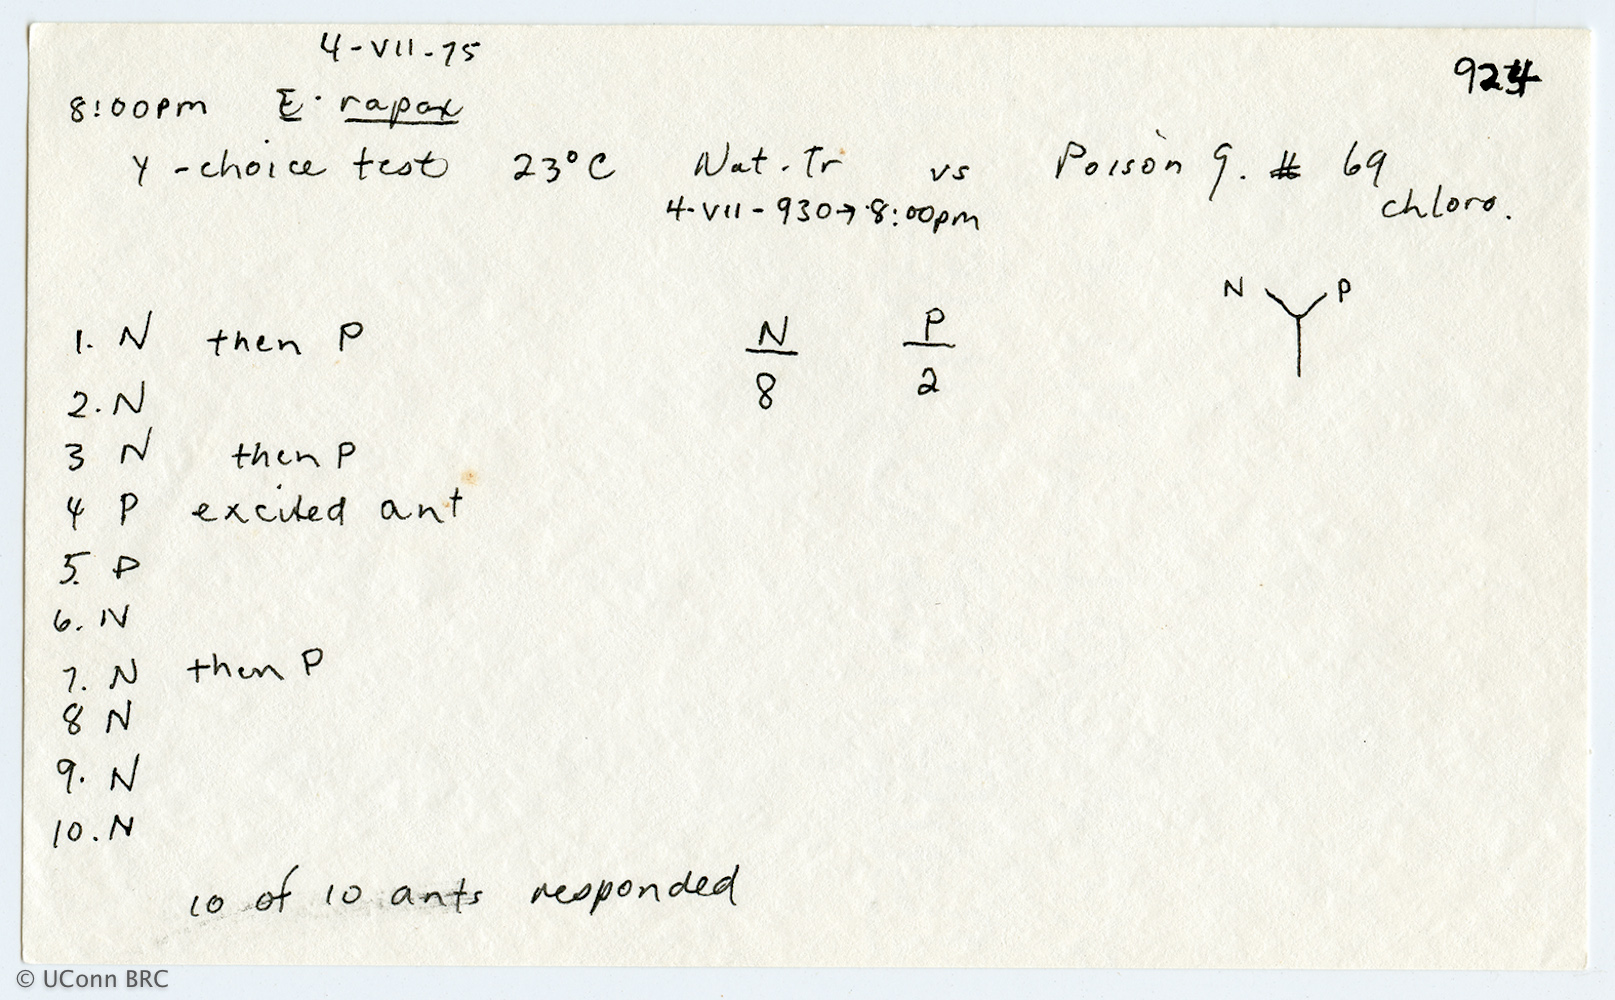 4-VII-75
924
8:00pm E. rapax
Y-choice test 23°C Nat. Tr vs Poison g. # 69
4-VII-930→8:00pm chloro.
N P
1. N then P
N P
8 2
2. N
3 N then P
4 P excited ant
5. P
6. N
7. N then P
8 N
9. N
10. N
10 of 10 ants responded
© UConn BRC